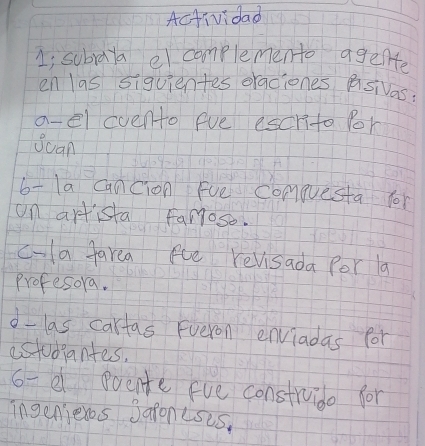 Actividad
1; subraya el complemento agente
en las siguientes oraciones pasivas:
a- el cuento fue escrito por
Juan
b- la cancion fue compuesta por
un artista famoso.
c- la tarea fue revisada por la
profesora.
d- las cartas fueron enviadas por
estudiantes.
6- el puente fue construido por
ingenieros japoneses.